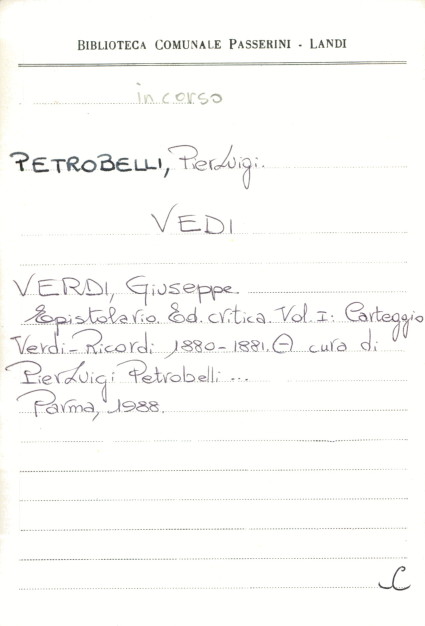 BIBLIOTECA COMUNALE PASSERINI - LANDI
in corso
PETROBELLI, PierLuigi.
VEDI
VERDI, Giuseppe.
Epistolario. Ed. critica. Vol. I: Carteggio
Verdi-Ricordi 1880-1881. A cura di
PierLuigi Petrobelli ...
Parma, 1988.
C